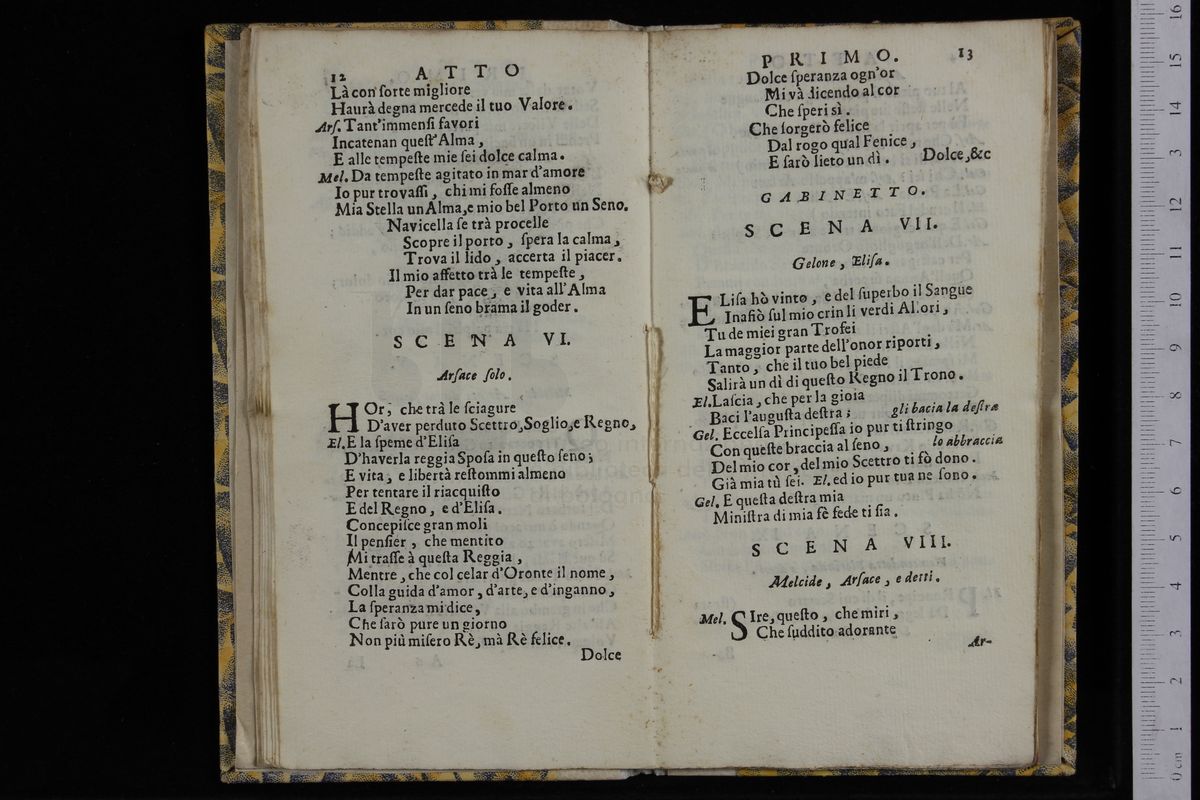 12 ATTO
Là con ſorte migliore
Haurà degna mercede il tuo Valore.
Arſ. Tant'immenſi favori
Incatenan queſt'Alma,
E alle tempeſte mie ſei dolce calma.
Mel. Da tempeſte agitato in mar d'amore
Io pur trovaſſi, chi mi foſſe almeno
Mia Stella un Alma, e mio bel Porto un Seno.
Navicella ſe trà procelle
Scopre il porto, ſpera la calma,
Trova il lido, accerta il piacer.
Il mio affetto trà le tempeſte,
Per dar pace, e vita all'Alma
In un ſeno brama il goder.
SCENA VI.
Arſace ſolo.
HOr, che trà le ſciagure
D'aver perduto Scettro, Soglio, e Regno,
El. E la ſpeme d'Eliſa
D'haverla reggia Spoſa in queſto ſeno;
E vita, e libertà reſtommi almeno
Per tentare il riacquiſto
E del Regno, e d'Eliſa.
Concepiſce gran moli
Il penſier, che mentito
Mi traſſe à queſta Reggia,
Mentre, che col celar d'Oronte il nome,
Colla guida d'amor, d'arte, e d'inganno,
La ſperanza mi dice,
Che ſarò pure un giorno
Non più miſero Rè, mà Rè felice.
Dolce
PRIMO. 13
Dolce ſperanza ogn'or
Mi và dicendo al cor
Che ſperi sì.
Che ſorgerò felice
Dal rogo qual Fenice,
E ſarò lieto un dì. Dolce, &c
GABINETTO.
SCENA VII.
Gelone, Eliſa.
ELiſa hò vinto, e del ſuperbo il Sangue
Inafiò ſul mio crin li verdi Allori,
Tu de miei gran Trofei
La maggior parte dell'onor riporti,
Tanto, che il tuo bel piede
Salirà un dì di queſto Regno il Trono.
El. Laſcia, che per la gioia
Baci l'auguſta deſtra; gli bacia la deſtra
Gel. Eccelſa Principeſſa io pur ti ſtringo
Con queſte braccia al ſeno, lo abbraccia
Del mio cor, del mio Scettro ti fò dono.
Già mia tù ſei. El. ed io pur tua ne ſono.
Gel. E queſta deſtra mia
Miniſtra di mia fè fede ti ſia.
SCENA VIII.
Melcide, Arſace, e detti.
Mel. SIre, queſto, che miri,
Che ſuddito adorante
Ar-